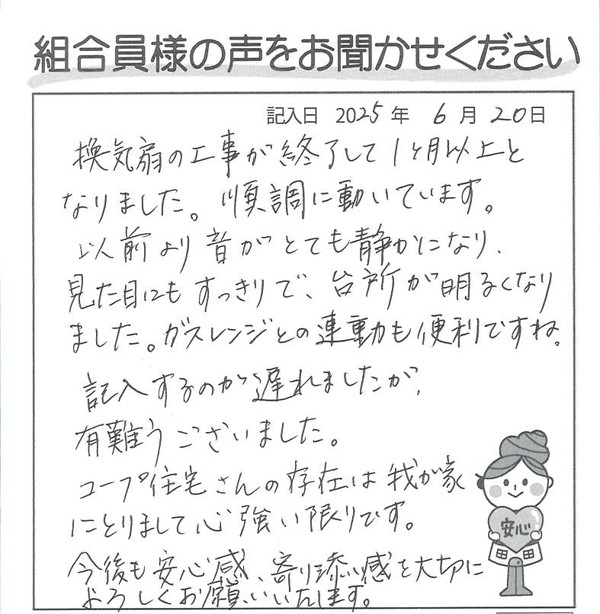 組合員様の声をお聞かせください
記入日 2025年 6月 20日
換気扇の工事が終了して1ヶ月以上と
なりました。順調に動いています。
以前より音がとても静かになり、
見た目にもすっきりで、台所が明るくなり
ました。ガスレンジとの連動も便利ですね。
記入するのが遅れましたが、
有難うございました。
コープ住宅さんの存在は我が家
にとりまして心強い限りです。
今後も安心感、寄り添い感を大切に
よろしくお願いいたします。
安心